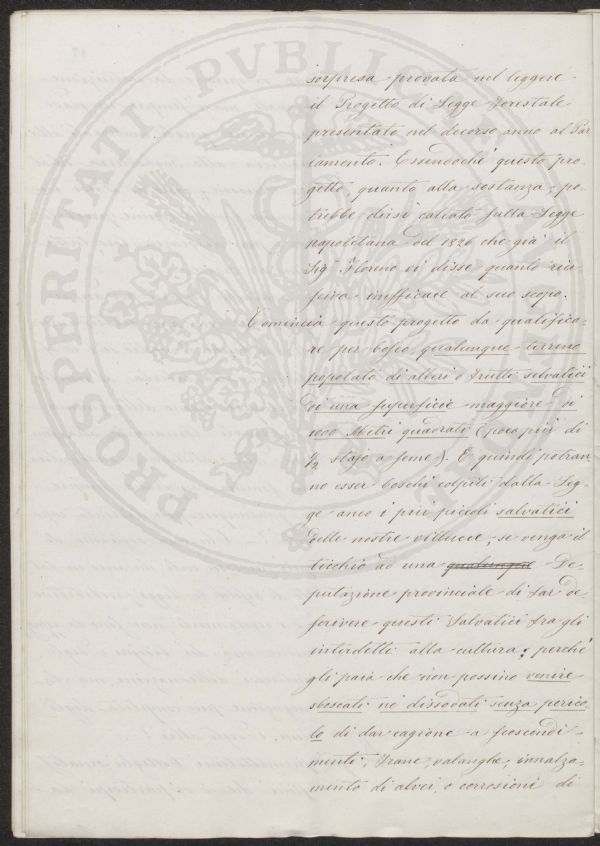 sorpresa provata nel leggere
il Progetto di Legge Forestale
presentato nel decorso anno al Par
lamento. Essendochè questo pro-
getto, quanto alla sostanza, po-
trebbe dirsi calcato sulla Legge
napolitana del 1826 che già il
Sig.r Floreno vi disse quanto riu
sciva inefficace al suo scopo.
Comincia questo progetto da qualifica-
re per bosco qualunque terreno
popolato di alberi o frutti selvatici
di una superficie maggiore di
1000 Metri quadrati (poco più di
1/2 stajo a seme). E quindi potran
no esser boschi colpiti dalla Leg-
ge anco i più piccoli salvatici
delle nostre villucce, se venga il
ticchio ad una qualunque De-
putazione provinciale di far de-
scrivere questi Salvatici fra gli
interdetti alla cultura; perchè
gli paia che non possino venire
sboscati nè dissodati senza perico
lo di dar cagione a scoscendi-
menti, frane, valanghe, innalza-
mento di alvei, o corrosioni di
PROSPERITATI PVBLICAE